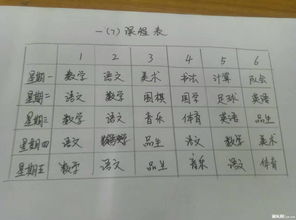 一(7)课程表
1 2 3 4 5 6
星期一 数学 语文 美术 书法 计算 队会
星期二 语文 数学 围棋 国学 足球 英语
星期三 数学 语文 音乐 体育 英语 品生
星期四 语文 数学 品生 语文 数学 美术
星期五 数学 语文 品生 音乐 语文 体育